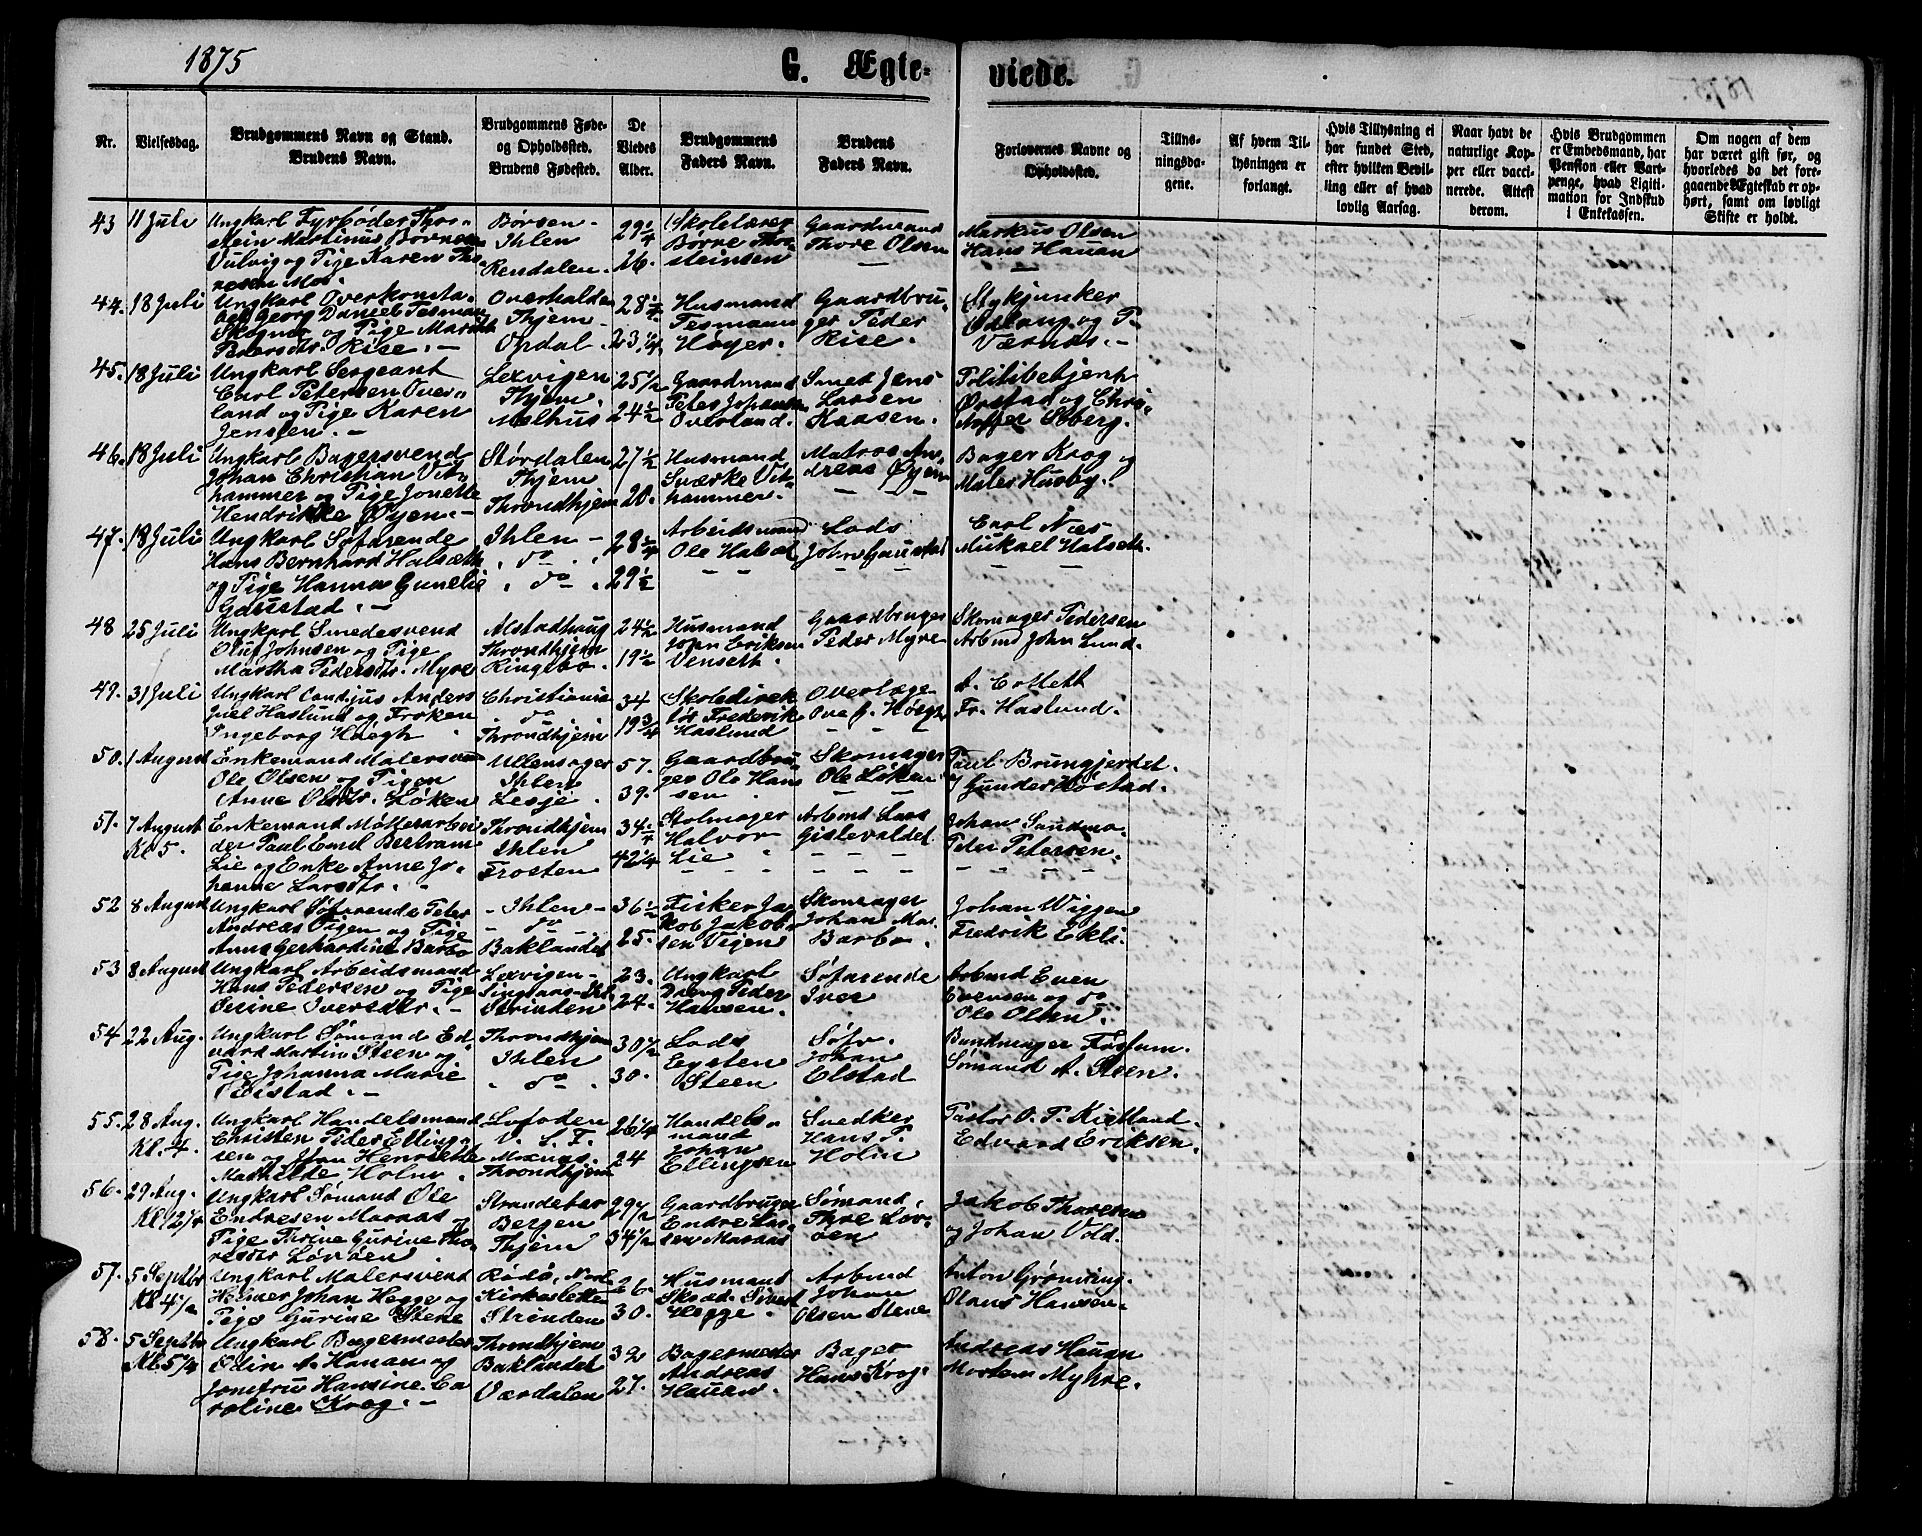 1875
G. Ægte-
viede.
Nr.
Vielsesdag.
Brudgommens Navn og Stand.
Brudens Navn.
Brudgommens Føde-
og Opholdssted.
Brudens Fødested.
De
Viedes
Alder.
Brudgommens
Faders Navn.
Brudens
Faders Navn.
Forlovernes Navne og
Opholdssted.
Tillys-
ningsda-
gene.
Af hvem Til-
lysningen er
forlangt.
Hvis Tillysning ei
har fundet Sted,
efter hvilken Bevil-
ling eller af hvad
lovlig Aarsag.
Naar havt de
naturlige Kop-
per eller vacci-
nerede. Attest
derom.
Hvis Brudgommen
er Embedsmand, har
Pension eller Vart-
penge, hvad Ligiti-
mation for Indskud
i Enkekassen.
Om nogen af dem
har været gift før, og
hvorledes da det fore-
gaaende Ægteskab er op-
hørt, samt om lovligt
Skifte er holdt.
43
11 Juli
Ungkarl Fyrbøder Thor-
stein Martinus Borresen
Vulvig og Pige Karen Tho-
resen Moe.
Børsen-
Ihlen
Rendalen.
29 1/4
26.
Skolelærer
Borre Thor-
steinsen
Gaardmand
Thore Olsen
Markus Olsen
Hans Hauan
44.
18 Juli
Ungkarl Overkonsta-
bel Georg Daniel Tesman
Skogmo og Pige Marit
Pedersdtr. Rise. -
Overhalden
Thjem -
Opdal.
28 1/4
23 1/4
Husmand
Tesmann
Høyer.
Gaardbru-
ger Peder
Rise.
Stykjunker
Ødlaug og P.
Værnes. -
45.
18 Juli
Ungkarl Sergeant
Carl Petersen Over-
land og Pige Karen
Jensen. -
Lexvigen
Thjem.
Melhus
25 1/2
24 1/2
Gaardmand
Peter Johansen
Overland.
Smed Jens
Larsen
Kaasen.
Politibetjent
Ørstad og Chri-
stoffer Øberg.
46.
18 Juli
Ungkarl Bagersvend
Johan Christian Vit-
hammer og Pige Jonette
Hendrikke Øyen. -
Størdalen
Thjem
Throndhjem
27 1/2
20.
Husmand
Sværke Vit-
hammer.
Matros An-
dreas Øyen
Bager Krog og
Maler Husby.
47.
18 Juli
Ungkarl Søfarende
Hans Bernhard Halseth
og Pige Hanna Gunelie
Gaustad. -
Ihlen -
do
do
28 1/4
29 1/2
Arbeidsmand
Ole Halset
Lods
John Gaustad
Carl Næs
Mikael Halseth.
48
25 Juli
Ungkarl Smedesvend
Oluf Johnsen og Pige
Martha Pedersdtr. Myre
Alstadhaug
Throndhjem
Ringebo.
24 1/2
19 1/2
Husmand
John Eriksen
Venseth.
Gaardbruger
Peder Myre
Skomager Pedersen
Arbmd John Lund.
49.
31 Juli
Ungkarl Candjus Anders
Juel Haslund og Frøken
Ingeborg Høegh
Christiania
do
Throndhjem
34
19 3/4
Skoledirek
tør Frederik
Haslund
Overlæge
Ove J. Høegh
A. Collett
Fr. Haslund.
50.
1 August
Enkemand Malersvend
Ole Olsen og Pigen
Anne Olsdtr. Løken
Ullensager
Ihlen
Lesje
57.
39.
Gaardbru-
ger Ole Han
sen
Skomager
Ole Løken
Paul Brungjerdet.
Gunder Røstad.
51.
7 August
Kl 5.
Enkemand Møllerarbei
der Paul Emil Bertram
Lie og Enke Anne Jo-
hanne Larsdtr.
Throndhjem
Ihlen
Frosten
34 1/4
42 1/4
Stolmager
Halvor
Lie
Arbmd Lars
Gistevaldet
Johan Sandmo.
Peder Petersen.
52
8 August
Ungkarl Søfarende Peter
Andreas Vigen og Pige
Anna Gerhardine Barbo
- Ihlen -
do
Baklandet
36 1/2
25.
Fisker Ja-
kob Jakob-
sen Vigen
Skomager
Johan Mar.
Barbo.
Johan Wiggen
Fredrik Ekli.
53
8 August
Ungkarl Arbeidsmand
Hans Pedersen og Pige
Oeine Iversdtr. -
Lexvigen-
Strinden
23.
24.
Ungkarl
Dreng Peder
Hansen.
Søfarende
Iver
Arbmd Even
Evensen og do
Ole Olsen.
54
22 Aug.
Ungkarl Sømand Ed-
vard Martin Steen og
Pige Johanna Marie
Elstad. -
Throndhjem
Ihlen
do
30 1/2
30.
Lods
Eysten
Steen
Søfr.
Johan
Elstad
Bundmager Fossum.
Sømand A. Steen.
55.
28 Aug.
Kl. 4.
Ungkarl Handelsmand
Christen Peder Elling-
sen og Jfru Henriette
Mathilde Holm.
Lofoden
Throndhjem
26 1/4
24
Handels-
mand
Johan
Ellingsen
Svedker
Hans P.
Holm
Pastor O. P. Kielland.
Edvard Eriksen.
56.
29 Aug.
Kl 12 1/4
Ungkarl Sømand Ole
Endresen Maraas
Pige Thrine Gurine Tho-
resdtr Løvøen
Strandebar
Bergen
Thjem
29 1/2
34 1/2
Gaardbruger
Endre Lar-
sen Maraas
Sømand
Thore Løv-
øen
Jakob Thoresen
og Johan Vold.
57.
5 Septbr
Kl 4 1/2
Ungkarl Malersvend
Heiner Johan Hegge og
Pige Gurine Stene
Rødø, Nord.
Kirkesletten
Strinden
26.
30.
Husmand
Skræd. Sivert
Hegge.
Arbmd
Johan
Olsen Stene
Anton Grønning.
Olaus Hansen.
58.
5 Septbr
Kl 5 1/4
Ungkarl Bagermester
Odin A. Hauan og
Jomfru Hansine Ca
roline Krog. -
Throndhjem
Baklandet
Værdalen
32
27.
Bagermester
Andreas
Hauan.
Bager
Hans Krog.
Andreas Hauan
Morten Myhre.